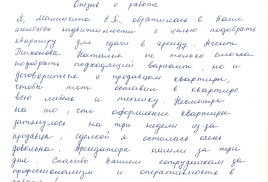 Отзыв о работе
Я, Малинкина Е.В., обратилась в Ваше
агентство недвижимости с целью подобрать
квартиру для сдачи в аренду. Агент
Тихонова Наталья не только смогла
подобрать подходящий вариант, но и
договориться с продавцом квартиры,
чтобы тот оставил в квартире
всю мебель и технику. Несмотря
на то, что оформление квартиры
затянулось на три недели из-за
продавца, сделкой я осталась очень
довольна. Арендатора нашли за три
дня. Спасибо Вашим сотрудникам за
профессионализм и оперативность в
работе!